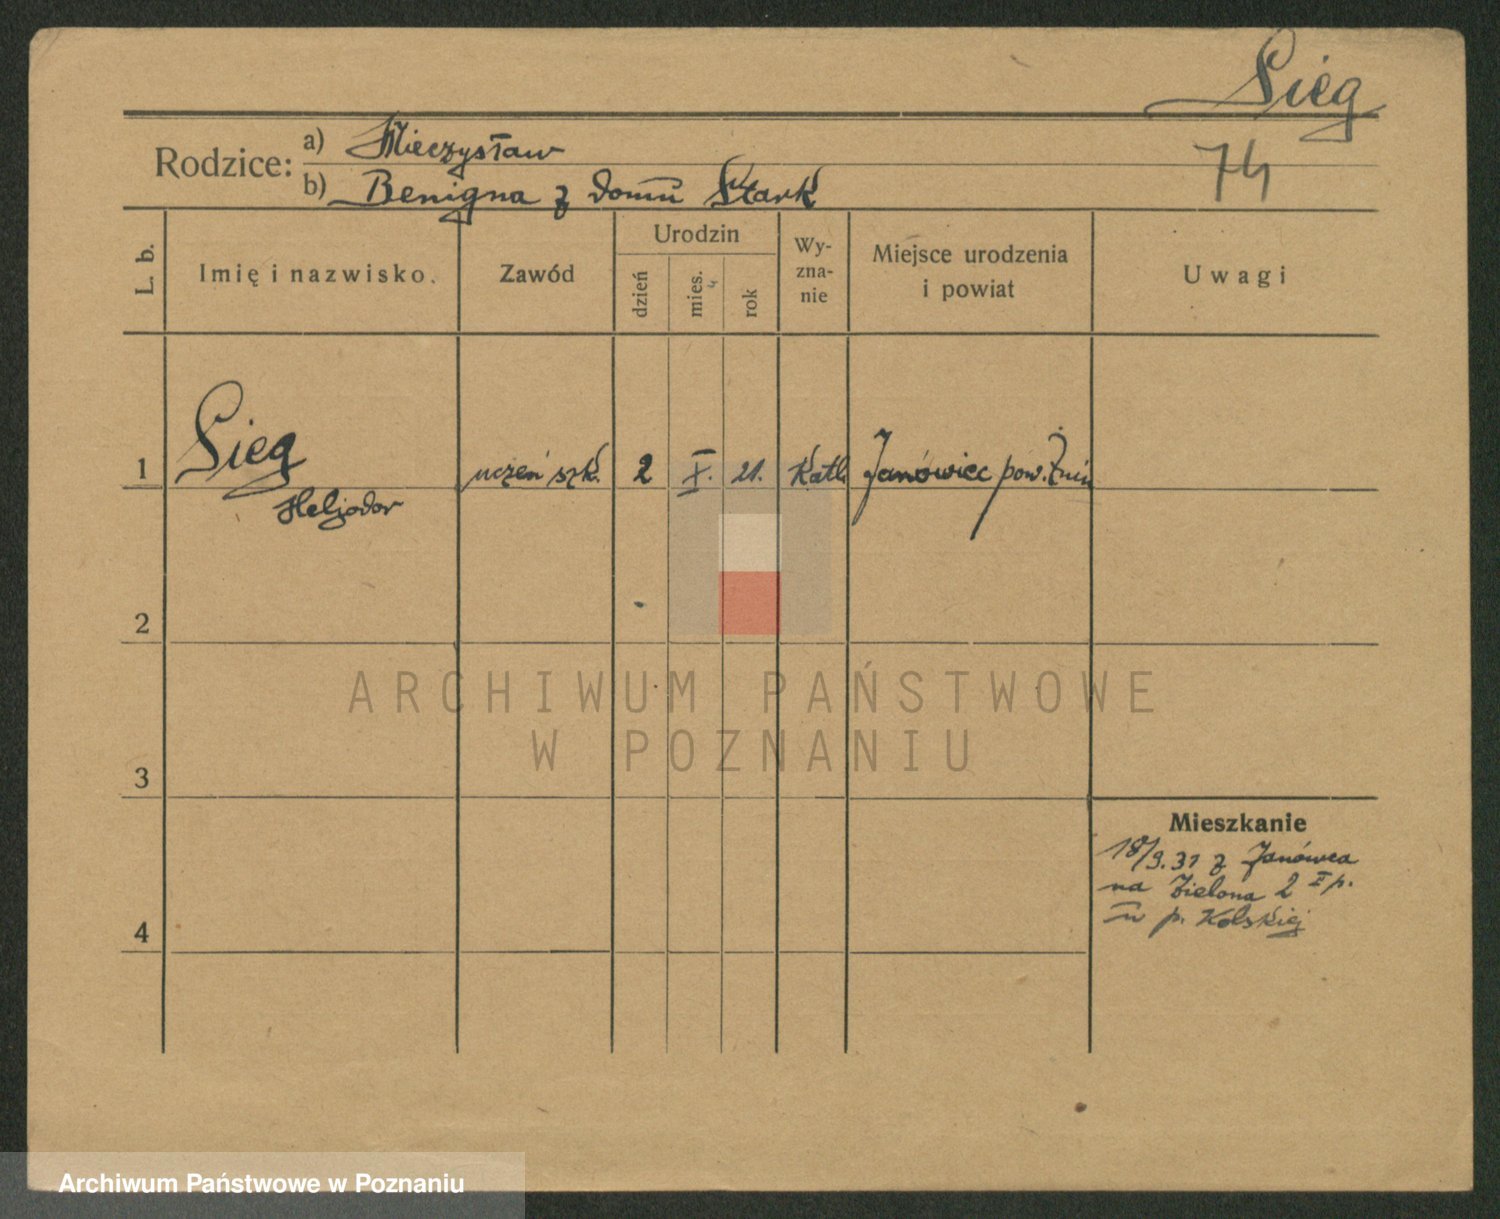 Sieg
74
Rodzice:
a) Mieczysław
b) Benigna z domu Stark
L. b.
Imię i nazwisko.
Zawód
Urodzin
dzień
mies.
rok
Wy-
zna-
nie
Miejsce urodzenia
i powiat
Uwagi
1 Sieg uczeń szk. 2 X. 21. Kath Janówiec pow. Żnin
Heljodor
2
3
4
Mieszkanie
18/9.31 z Janówca
na Zielona 2 II p.
u p. Kolskiej
ARCHIWUM PAŃSTWOWE
W POZNANIU
Archiwum Państwowe w Poznaniu